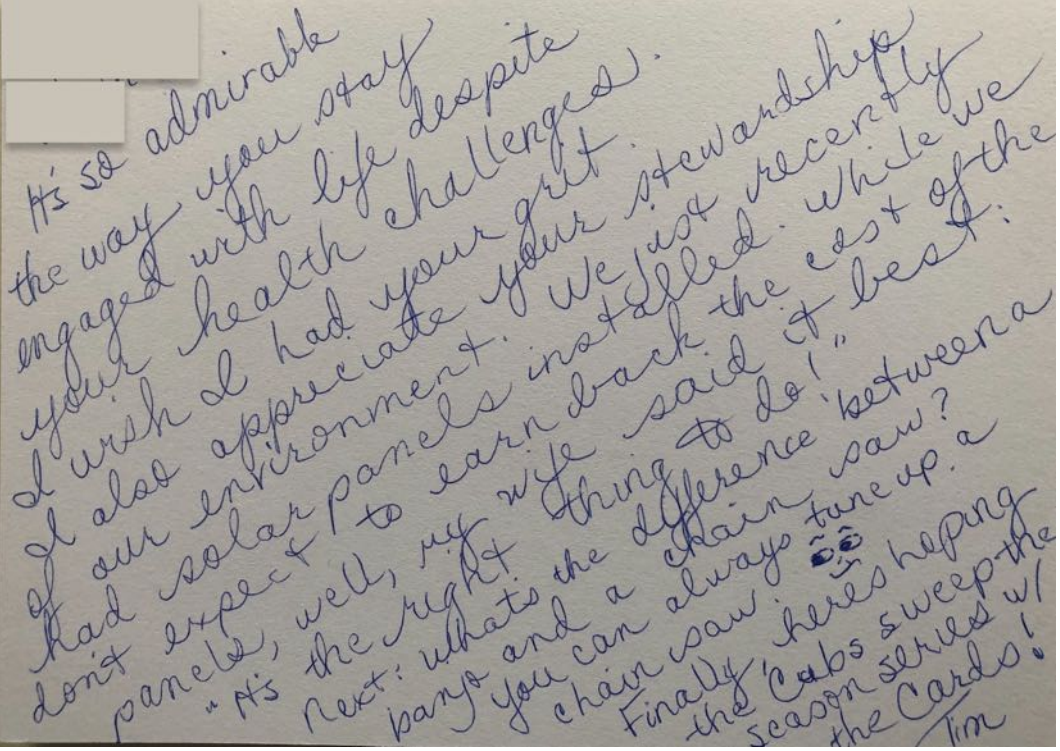 It's so admirable
the way you stay
engaged with life despite
your health challenges.
I wish I had your grit.
I also appreciate your stewardship
of our environment. We just recently
had solar panels installed. While we
don't expect to earn back the cost of the
panels, well, my wife said it best:
"It's the right thing to do!"
Next: whats the difference between a
banjo and a chain saw?
you can always tune up a
chain saw.
Finally, here's hoping
the Cubs sweep the
season series w/
the Cards!
Tim